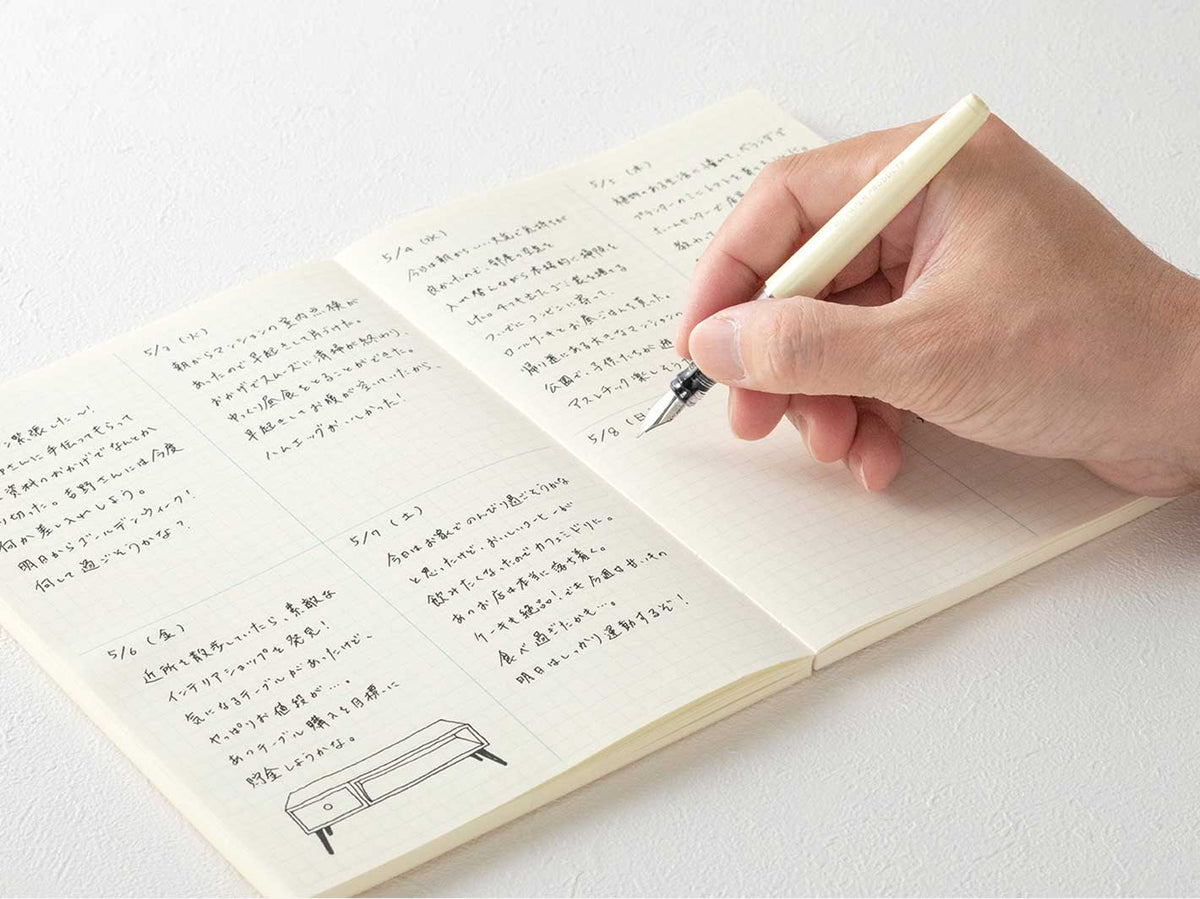 ン緊張した〜!
さんに手伝ってもらって
資料のおかげでなんとか
り切った。吉野さんには今度
何か差し入れしよう。
明日からゴールデンウィーク!
何して過ごそうかな?
5/3(火)
朝からマンションの室内点検が
あったので早起きして片付けた。
おかげでスムーズに清掃が終わり、
ゆっくり昼食をとることができた。
早起きしてお腹が空いていたから、
ハムエッグおいしかった!
5/6(金)
近所を散歩していたら、素敵な
インテリアショップを発見!
気になるテーブルがあったけど、
やっぱりお値段が…。
あのテーブル購入を目標に
貯金しようかな。
5/7(土)
今日はお家でのんびり過ごそうかな
と思ったけど、おいしいコーヒーが
飲みたくなったのでカフェミドリに。
あのお店は本当に落ち着く。
ケーキも絶品!でも今週は甘いもの
食べ過ごたかも…。
明日はしっかり運動するぞ!
5/4(水)
今日は朝から…天気で気持ちが
良かったので、部屋の空気を
入れ替しながら本格的に掃除を
したら4つも出た。ゴミ袋を捨てる
ついでにコンビニに寄って、
ロールケーキとお昼ごはんを買った。
帰り道にある大きなマンション
公園で、子供たちが遊
アスレチック楽しそう
5/5(木)
植物のある生活に憧れて、ベランダで
プランターのミニトマトを育て
ホームセンターで
5/8(日